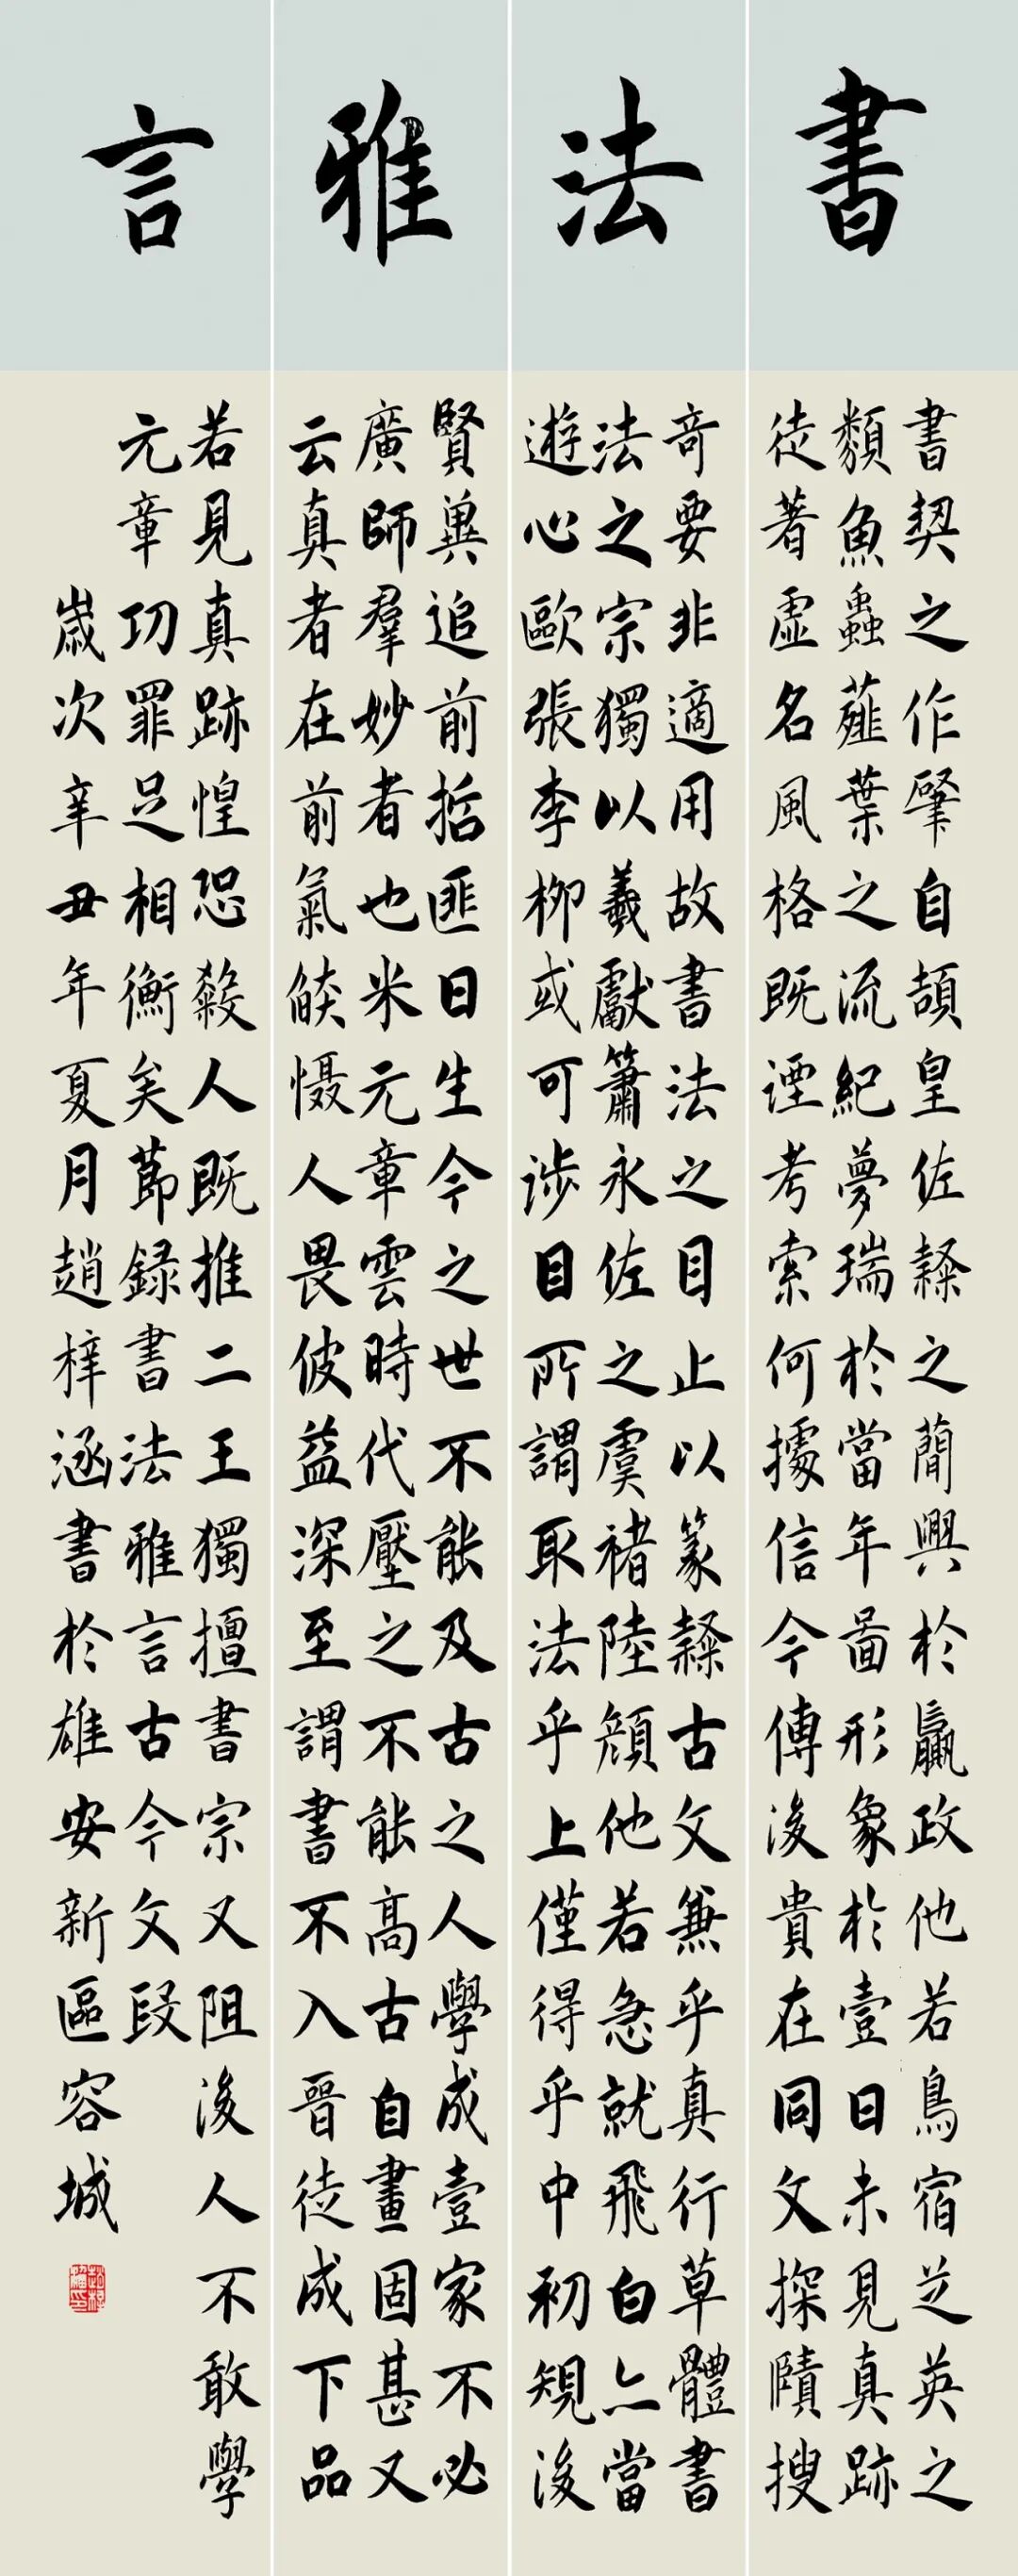 書法雅言
書契之作肇自頡皇佐隸之蕳興於贏政他若鳥宿芝英之
類魚蟲薤葉之流紀夢瑞於當年圖形象於壹日未見真跡
徒著虛名風格既湮考索何據信今傳後貴在同文探賾搜
奇要非適用故書法之目止以篆隸古文兼乎真行草體書
法之宗獨以羲獻簫永佐之虞褚陸顏他若急就飛白亦當
遊心歐張李柳或可涉目所謂取法乎上僅得乎中初規後
賢冀追前哲匪曰生今之世不能及古之人學成壹家不必
廣師羣妙者也米元章雲時代壓之不能高古自畫固甚又
云真者在前氣燄懾人畏彼益深至謂書不入晉徒成下品
若見真跡惶恐殺人既推二王獨擅書宗又阻後人不敢學
元章功罪足相衡矣節録書法雅言古今文段
歲次辛丑年夏月趙梓涵書於雄安新區容城